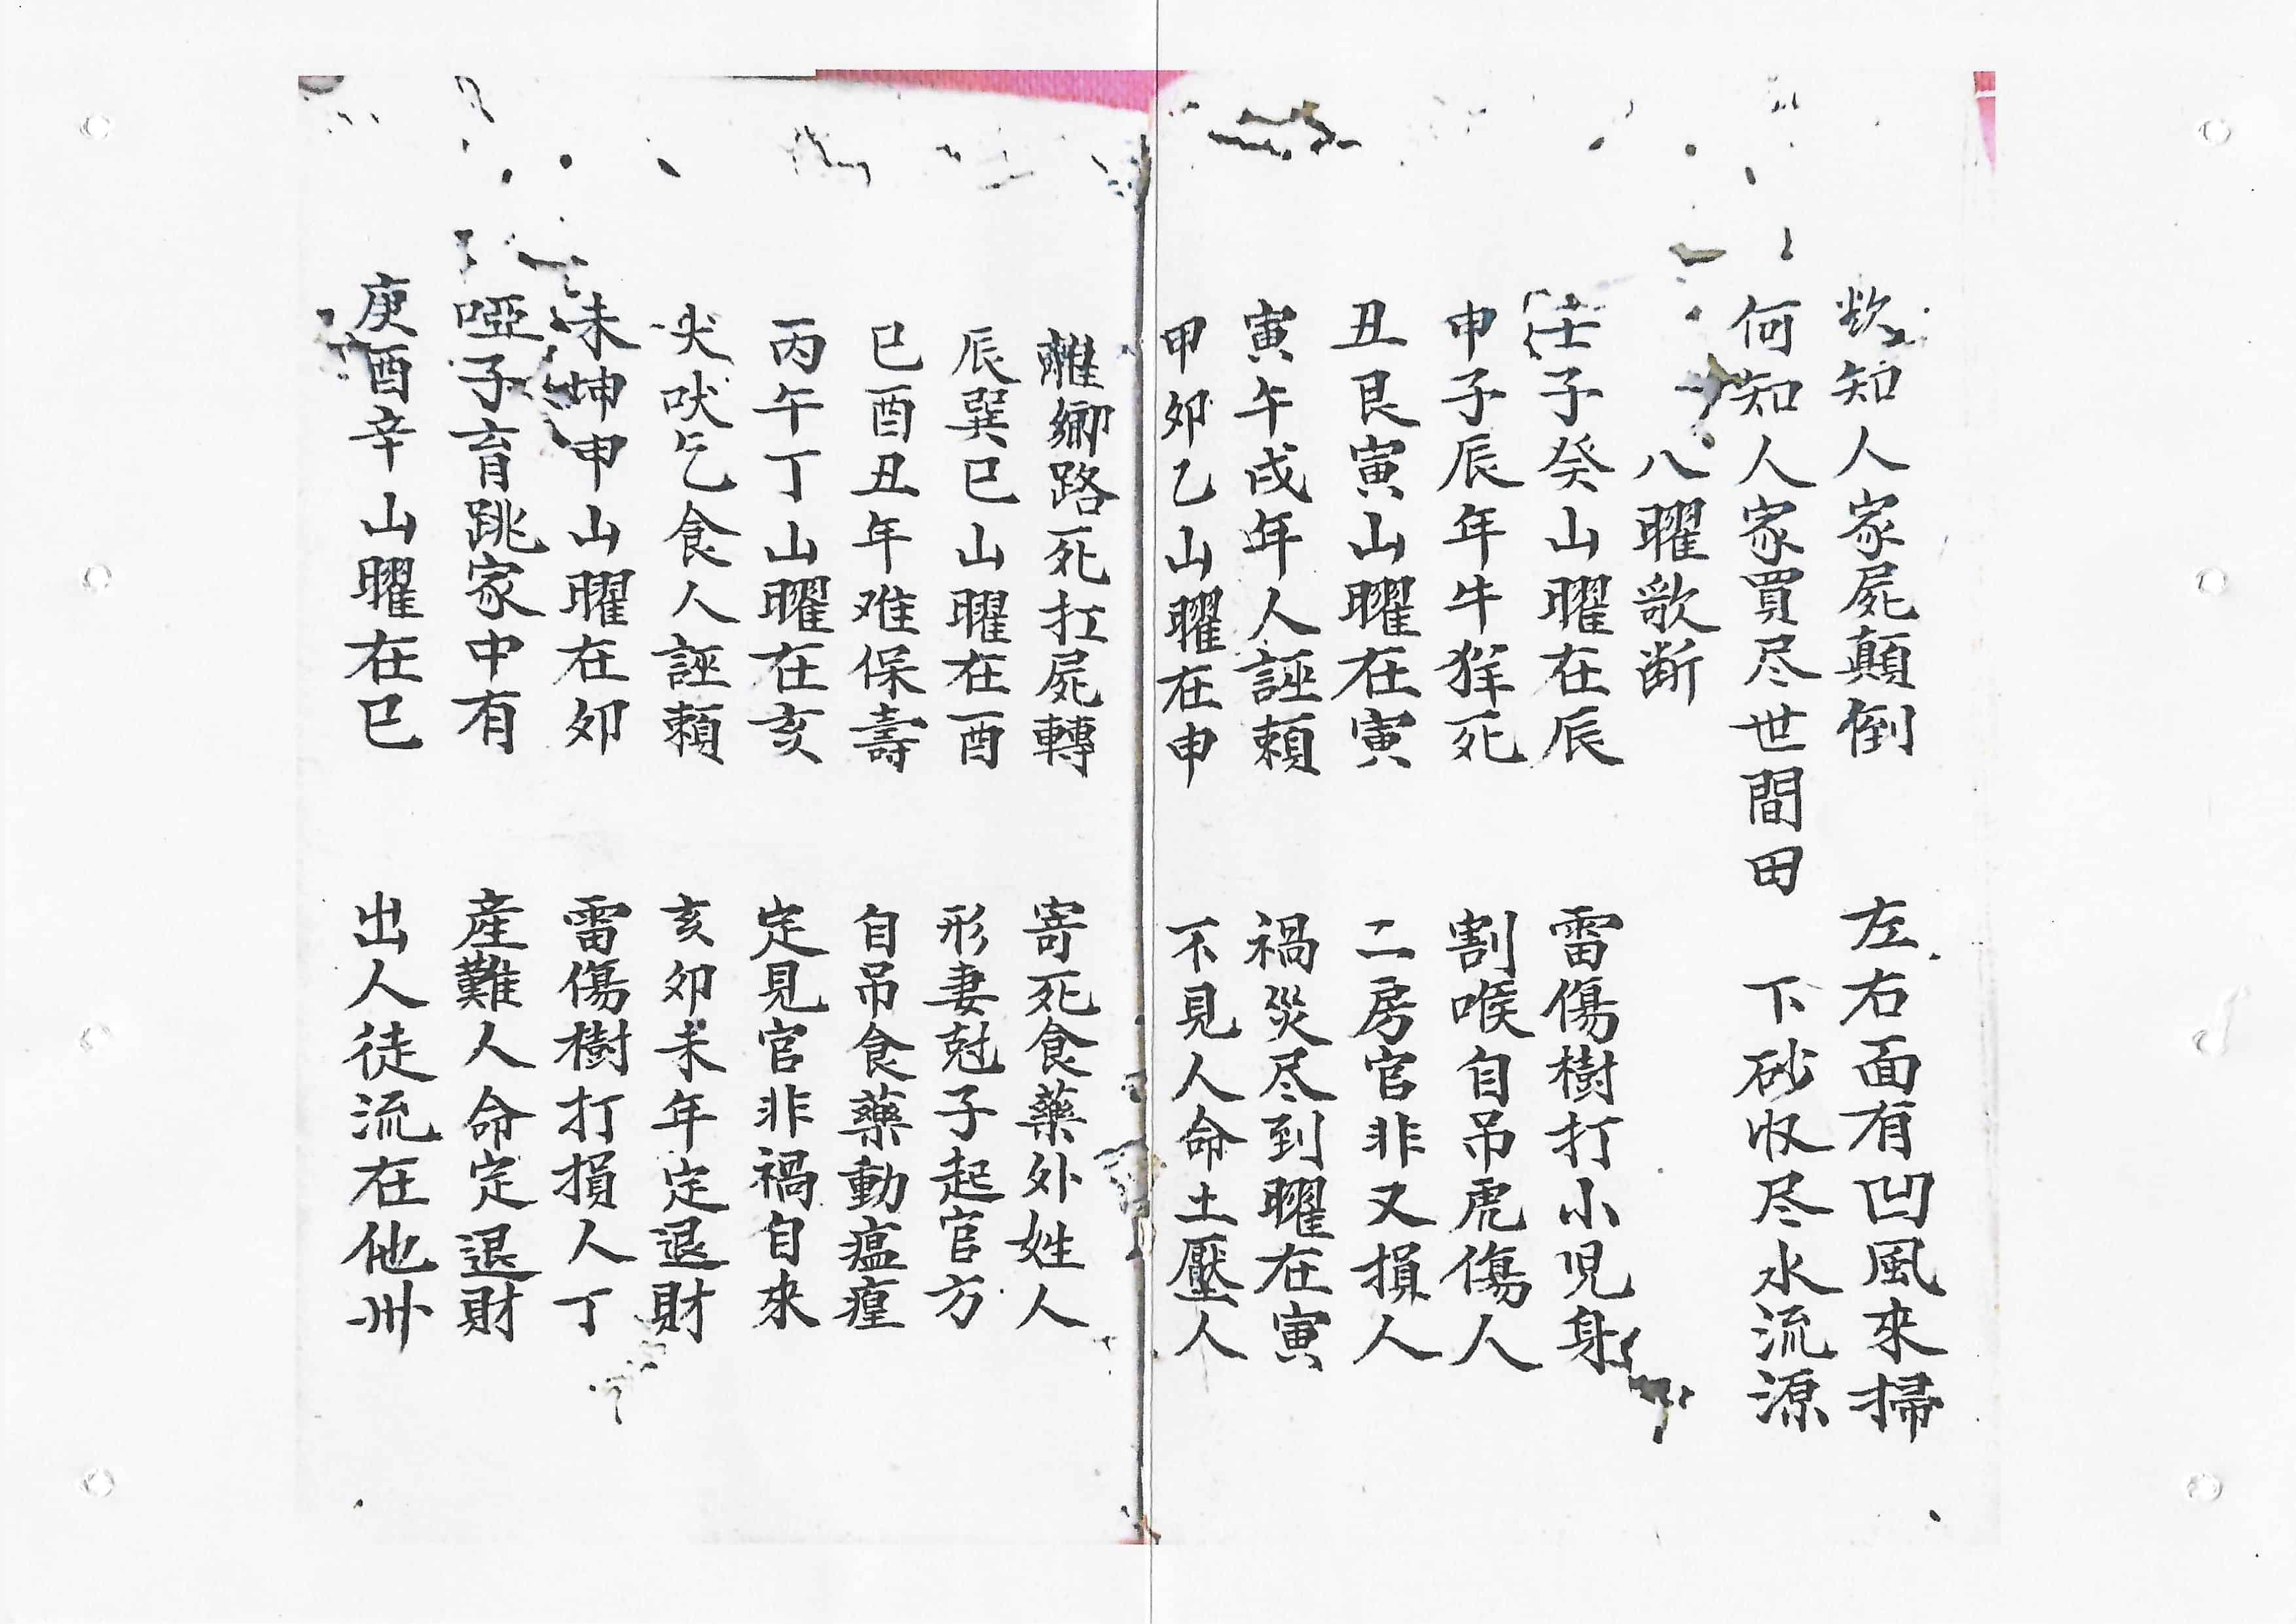 欲知人家屍顛倒 左右面有凹風來掃
何知人家買尽世間田 下砂收尽水流源
八曜歌断
壬子癸山曜在辰 雷傷樹打小児身
申子辰年牛猪死 割喉自吊虎傷人
丑艮寅山曜在寅 二房官非又損人
寅午戌年人誣賴 禍災尽到曜在寅
甲卯乙山曜在申 不見人命土壓人
離鄉路死扛屍轉 寄死食藥外姓人
辰巽巳山曜在酉 形妻尅子起官方
巳酉丑年难保壽 自吊食藥動瘟瘟
丙午丁山曜在亥 定見官非禍自來
犬吠乞食人誣賴 亥卯未年定退財
未坤申山曜在卯 雷傷樹打損人丁
啞子育跳家中有 產難人命定退財
庚酉辛山曜在巳 出人徒流在他州